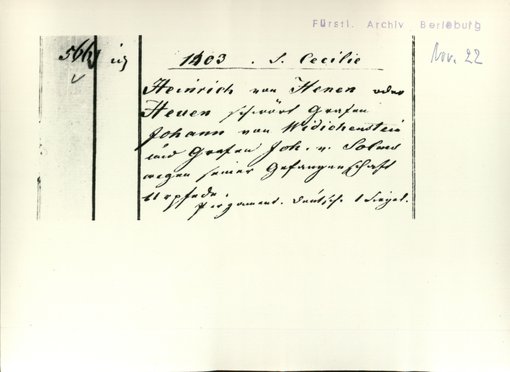 Fürstl. Archiv Berleburg
Nov. 22
1403 . S. Cecilie
Heinrich von Henen oder
Heuen schwört Grafen
Johann von Widichenstein
und Grafen Joh. v. Solms
wegen seiner Gefangenschaft
Urpfede.
Pergament. Deutsch. 1 Siegel.